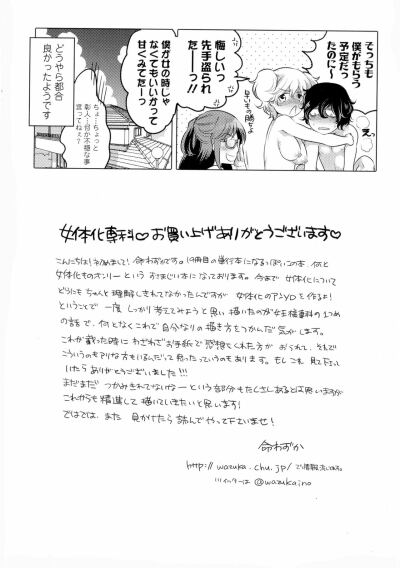 そっちも
僕がもらう
予定だっ
たのに〜
早いもの勝ちよ
えっ
悔しいっ
先手盗られ
たーーっ!!
僕が女の時じゃ
なくてもいいかって
甘くみてたー
ちょ…ちょっと
彰人…何か不穏な事
言ってねぇ?
どうやら都合
良かったようです
女体化専科♡お買い上げありがとうございます♡
こんにちは!初めまして!命わずかです。19冊目の単行本になるっぽいこの本、何と
女体化ものオンリーという すさまじい本になっております。今まで 女体化について
どうにもちゃんと理解しきれてなかったんですが 女体化のアンソロを作るよ!
ということで 一度 しっかり考えてみようと思い 描いたのが女王様専科の1つめ
の話で、何となくこれで自分なりの描き方をつかんだ気がします。
これが載った時に わざわざお手紙で感想をくれた方が おられて、それで
こういうのもアリな方もいるんだって思ったっていうのもあります。もし これ 見て下さって
いたら ありがとうございました!!!
まだまだ つかみきれてないなーという部分もたくさんあるとは思いますが
これからも精進して 描いていきたいと思います!
ではでは、また 見かけたら 読んでやって下さいませ!
命わずか
http://wazuka.chu.jp/ で情報流してます。
ツイッターは @wazukaino